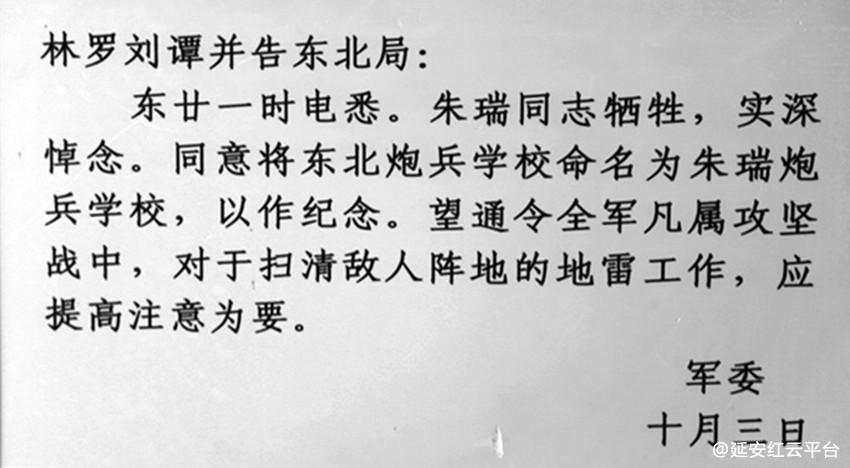 林罗刘谭并告东北局：
东廿一时电悉。朱瑞同志牺牲，实深
悼念。同意将东北炮兵学校命名为朱瑞炮
兵学校，以作纪念。望通令全军凡属攻坚
战中，对于扫清敌人阵地的地雷工作，应
提高注意为要。
军委
十月三日
@延安红云平台